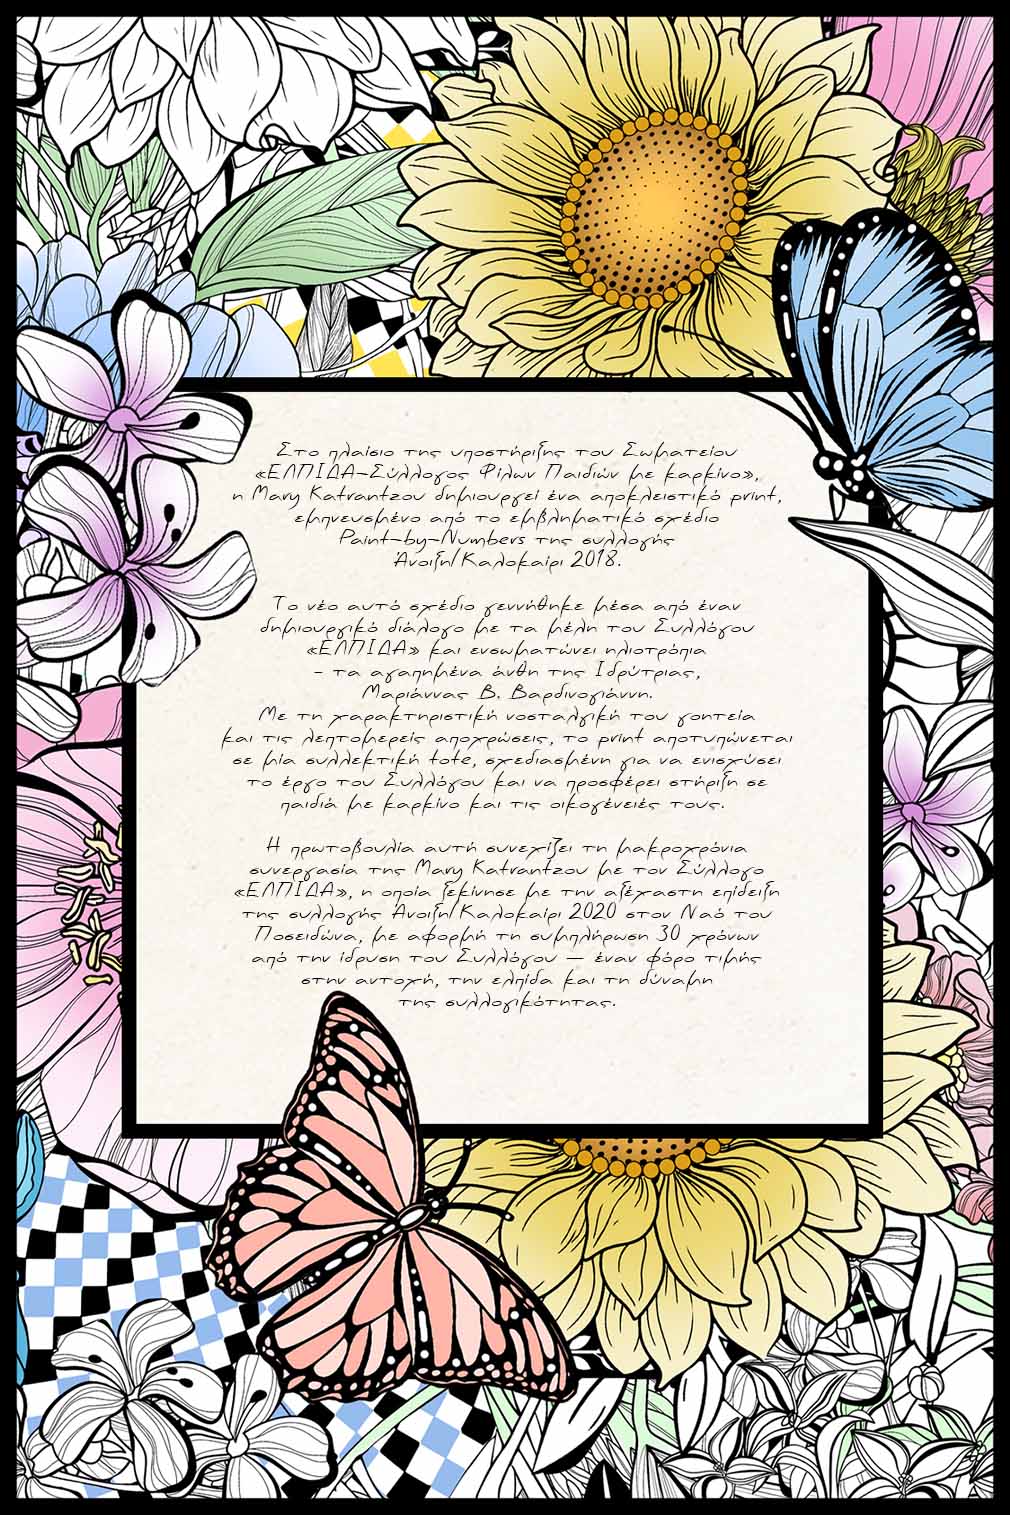 Στο πλαίσιο της υποστήριξης του Σωματείου
«ΕΛΠΙΔΑ-Σύλλογος Φίλων Παιδιών με καρκίνο»,
η Mary Katrantzou δημιουργεί ένα αποκλειστικό print,
εμπνευσμένο από το εμβληματικό σχέδιο
Paint-by-Numbers της συλλογής
Άνοιξη/Καλοκαίρι 2018.
Το νέο αυτό σχέδιο γεννήθηκε μέσα από έναν
δημιουργικό διάλογο με τα μέλη του Συλλόγου
«ΕΛΠΙΔΑ» και ενσωματώνει ηλιοτρόπια
- τα αγαπημένα άνθη της Ιδρύτριας,
Μαριάννας Β. Βαρδινογιάννη.
Με τη χαρακτηριστική νοσταλγική του γοητεία
και τις λεπτομερείς αποχρώσεις, το print αποτυπώνεται
σε μία συλλεκτική tote, σχεδιασμένη για να ενισχύσει
το έργο του Συλλόγου και να προσφέρει στήριξη σε
παιδιά με καρκίνο και τις οικογένειές τους.
Η πρωτοβουλία αυτή συνεχίζει τη μακροχρόνια
συνεργασία της Mary Katrantzou με τον Σύλλογο
«ΕΛΠΙΔΑ», η οποία ξεκίνησε με την αξέχαστη επίδειξη
της συλλογής Άνοιξη/Καλοκαίρι 2020 στον Ναό του
Ποσειδώνα, με αφορμή τη συμπλήρωση 30 χρόνων
από την ίδρυση του Συλλόγου — έναν φόρο τιμής
στην αντοχή, την ελπίδα και τη δύναμη
της συλλογικότητας.